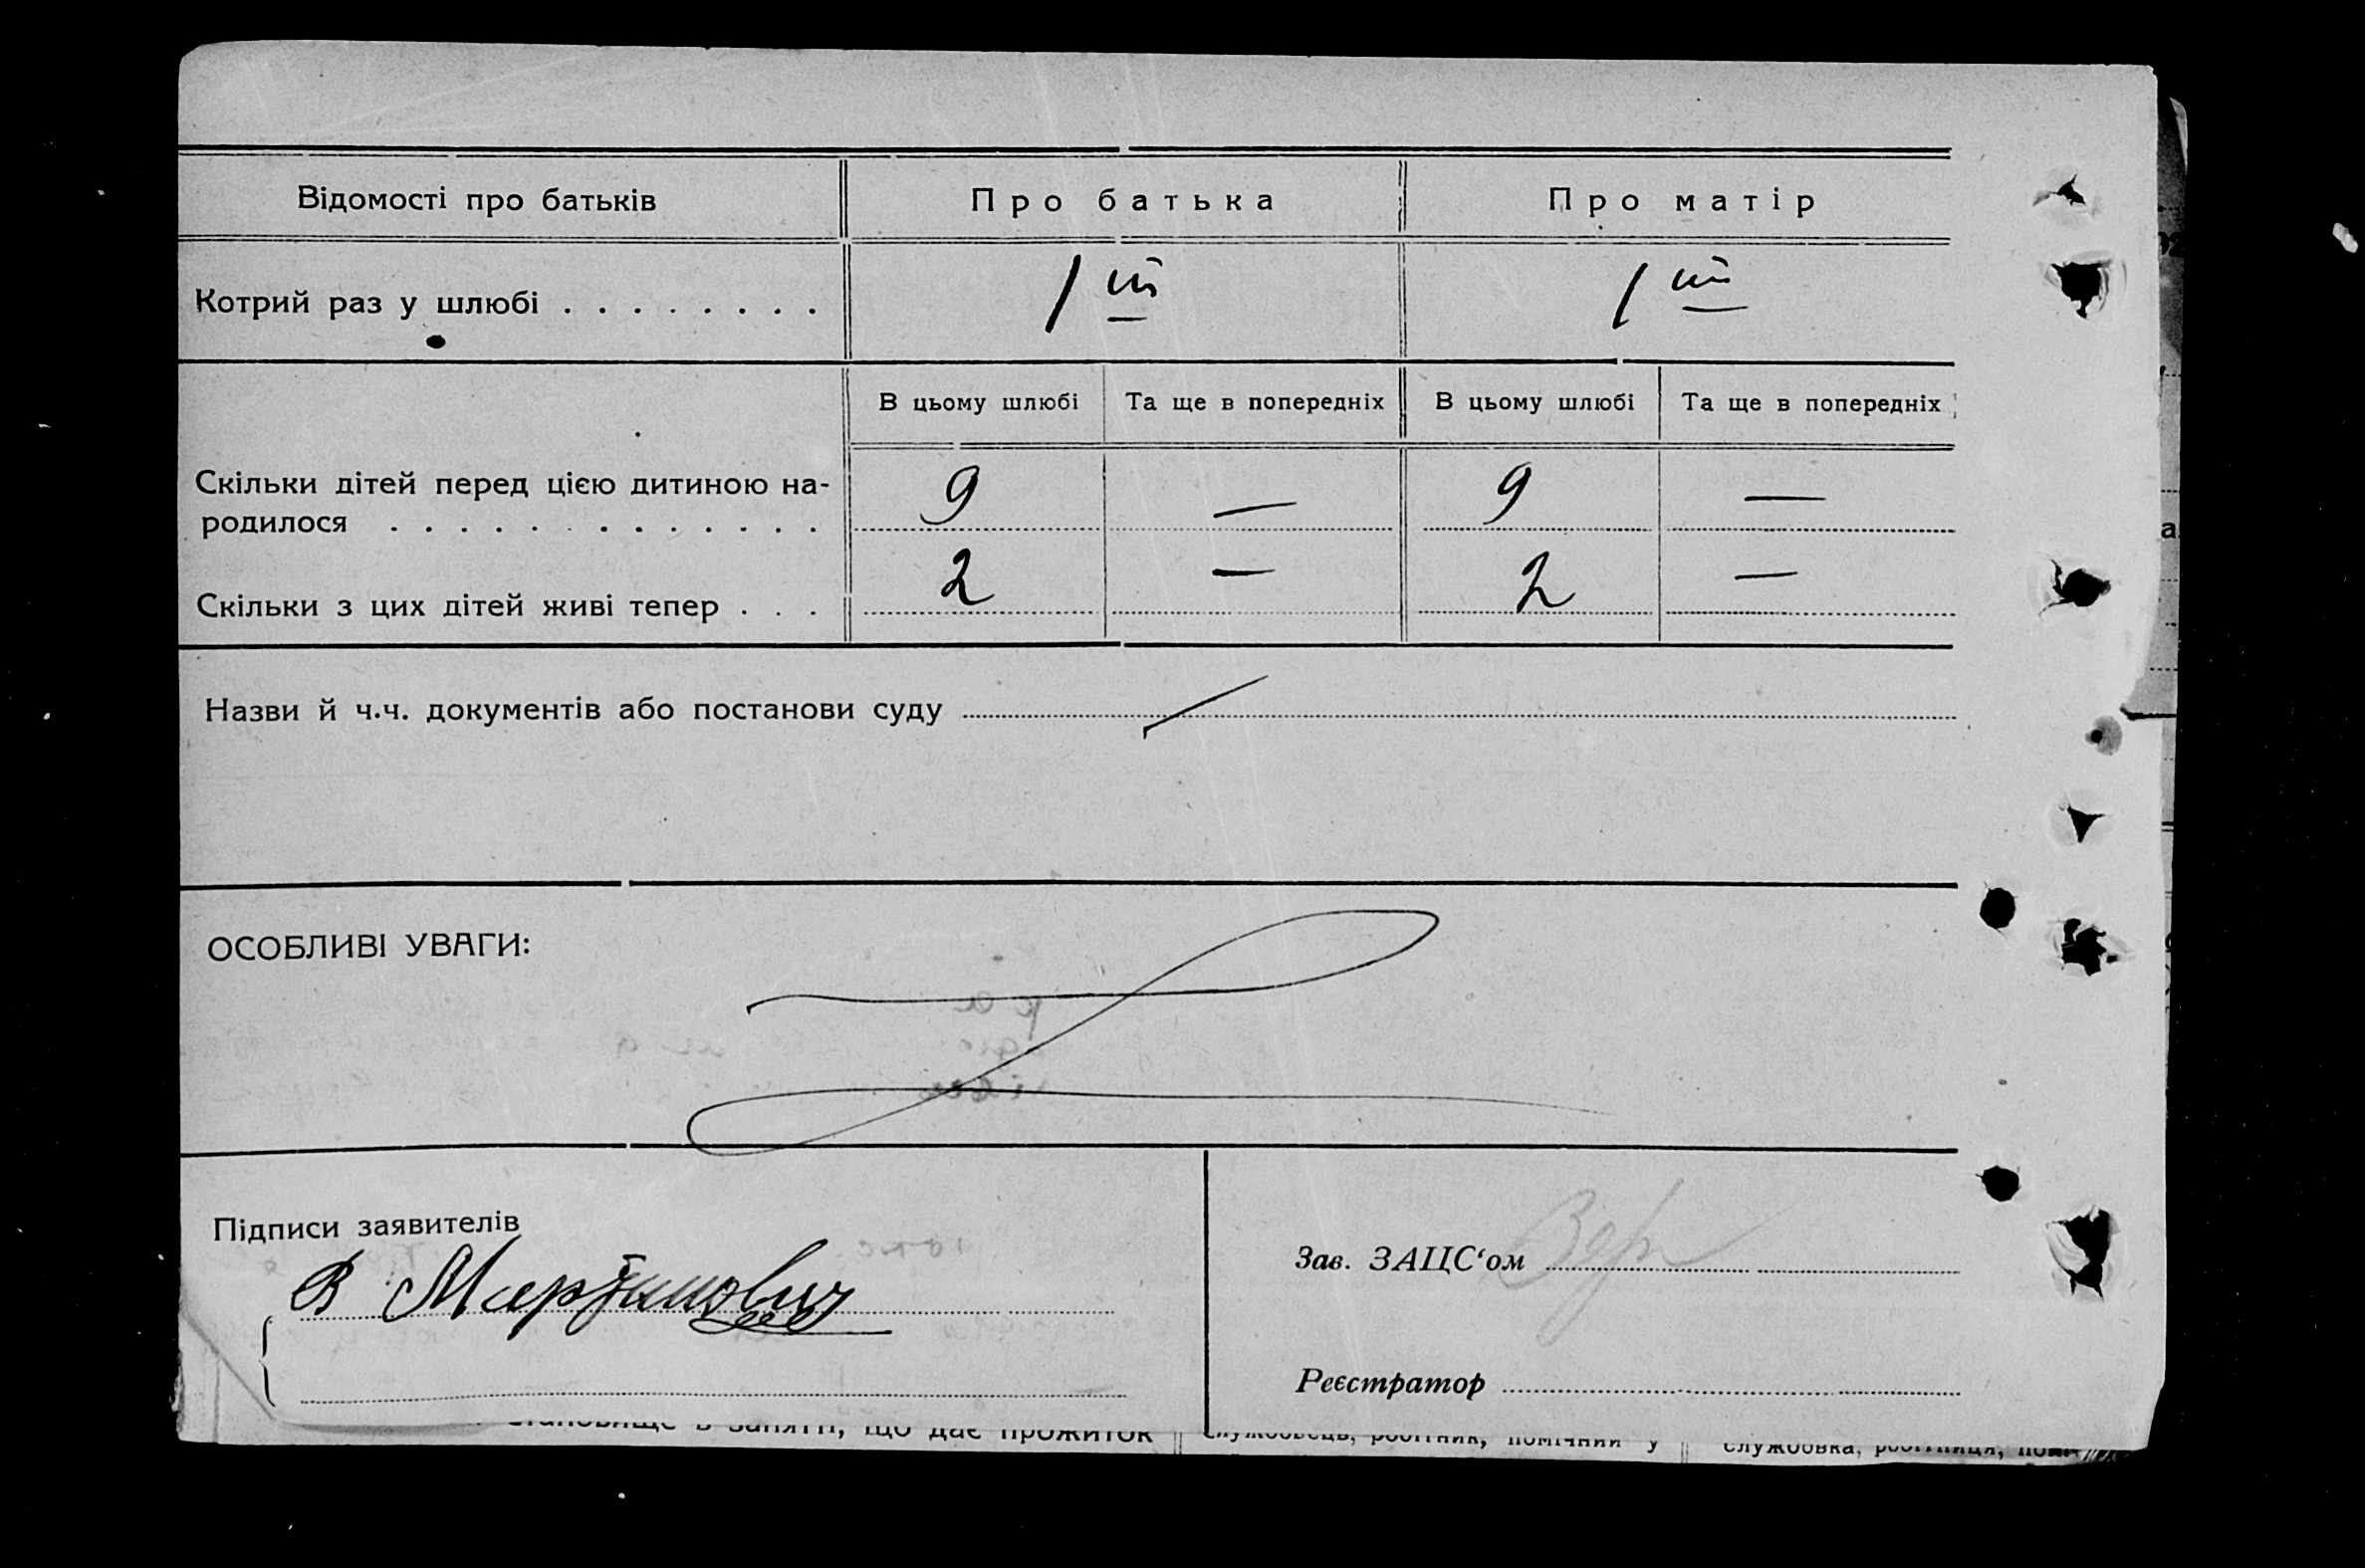 Відомості про батьків Про батька Про матір
Котрий раз у шлюбі . . . . . . . . 1ий 1ий
В цьому шлюбі Та ще в попередніх В цьому шлюбі Та ще в попередніх
Скільки дітей перед цією дитиною на-
родилося . . . . . . . . . . . . . 9 — 9 —
Скільки з цих дітей живі тепер . . . 2 — 2 —
Назви й ч.ч. документів або постанови суду
ОСОБЛИВІ УВАГИ:
Підписи заявителів
В Мартинович
Зав. ЗАЦС‘ом
Реєстратор
становище в занятті, що дає прожиток службовець, робітник, помічний у службовка, робітниця,